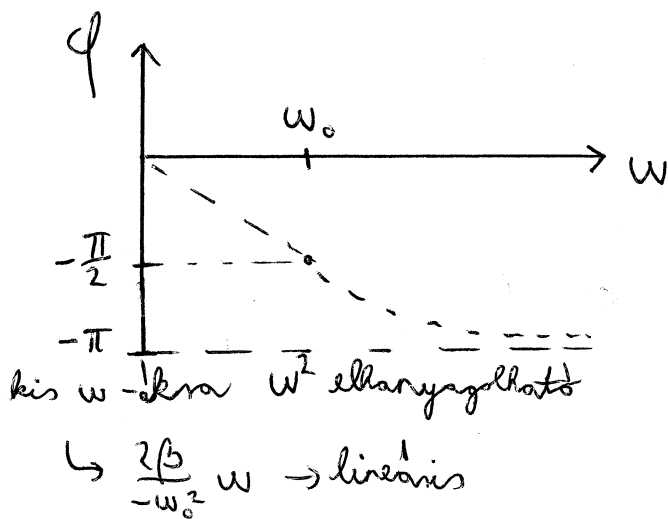 φ
ω₀
ω
-π/2
-π
kis ω-ákra ω² elhanyagolható
↳ 2β/-ω₀² ω → lineáris